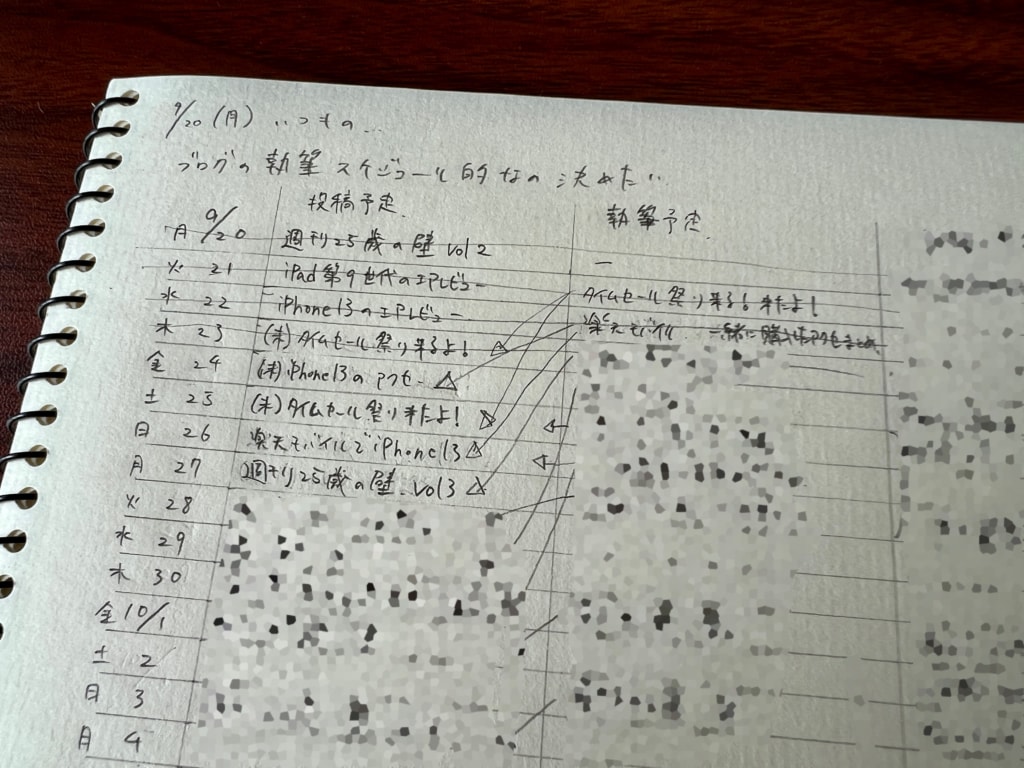 9/20 (月) いつもの…
ブログの執筆スケジュール的なの決めたい…
投稿予定. 執筆予定.
月 9/20 週刊25歳の壁 vol 2 ー
火 21 iPad 第9世代のエアレビュー タイムセール祭り来る! 来たよ!
水 22 iPhone13のエアレビュー 楽天モバイル 一緒に購入したアクセまとめ
木 23 (未) タイムセール祭り来るよ! △
金 24 (未) iPhone13のアクセー △
土 25 (未) タイムセール祭り来たよ! △
日 26 楽天モバイルでiPhone13 △
月 27 週刊25歳の壁. vol3 △
火 28
水 29
木 30
金 10/1
土 2
日 3
月 4